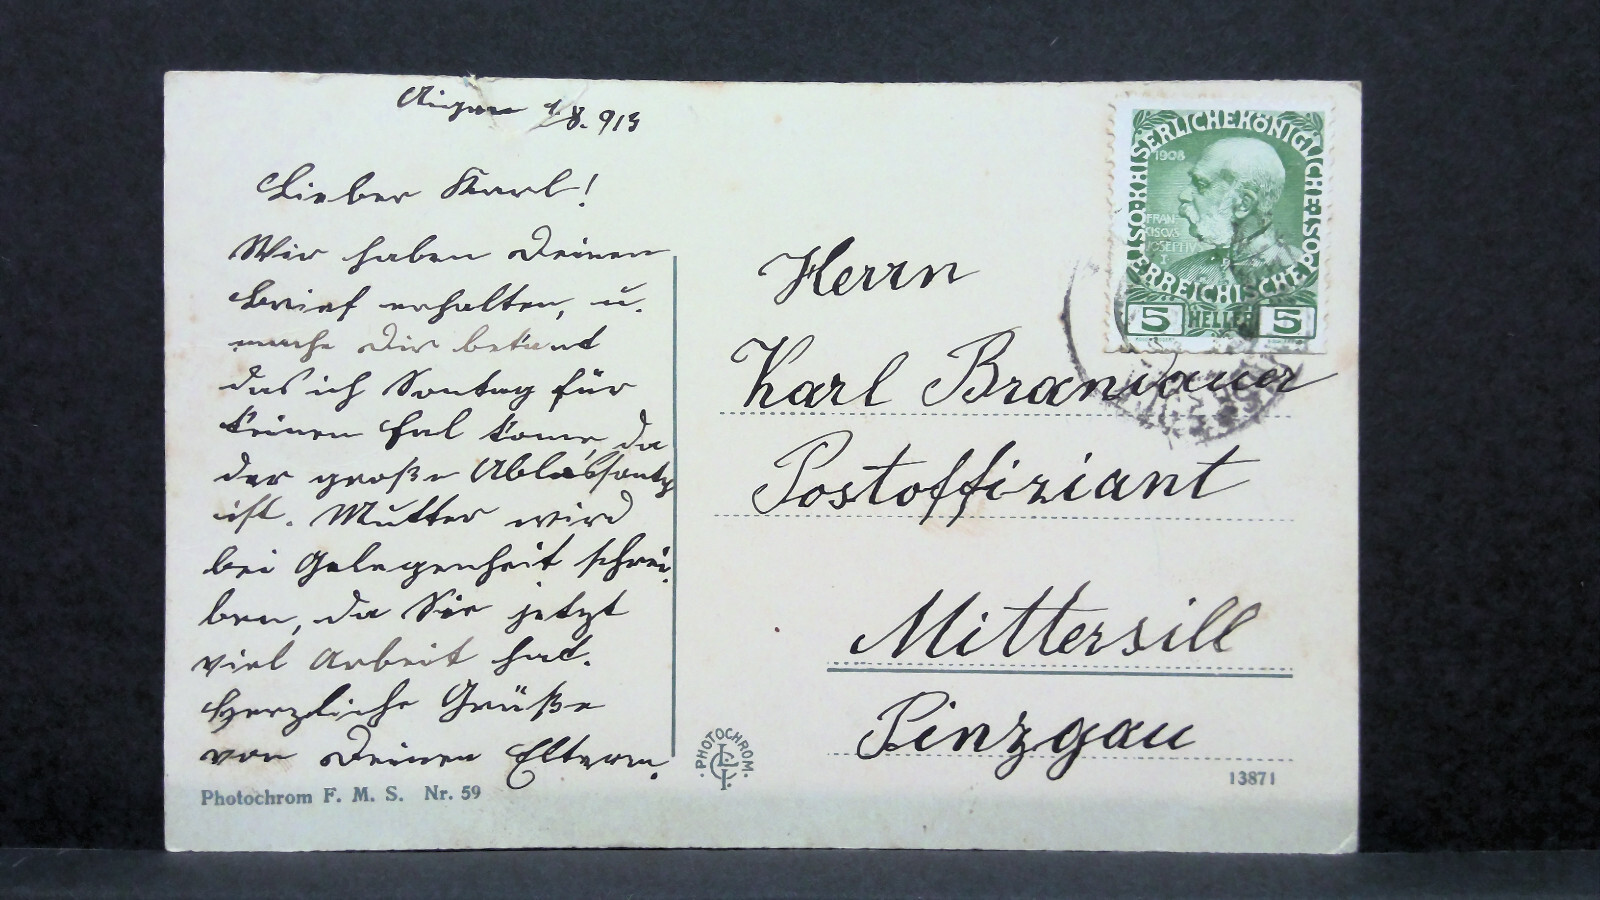 Aigen 1./8. 913
Lieber Karl!
Wir haben Deinen
Brief erhalten, u.
mache Dir bekant
das ich Sontag für
keinen Fal kome, da
der große Ablassontg
ist. Mutter wird
bei Gelegenheit schrei-
ben, da Sie jetzt
viel Arbeit hat.
Herzliche Grüße
von Deinen Eltern.
Photochrom F. M. S. Nr. 59
PHOTOCHROM.
KAISERLICHEKÖNIGLICHE
ÖSTERREICHISCHE POST
1908
FRAN-
CISCVS
IOSEPHVS
I
5 HELLER 5
Herrn
Karl Brandauer
Postoffiziant
Mittersill
Pinzgau
13871